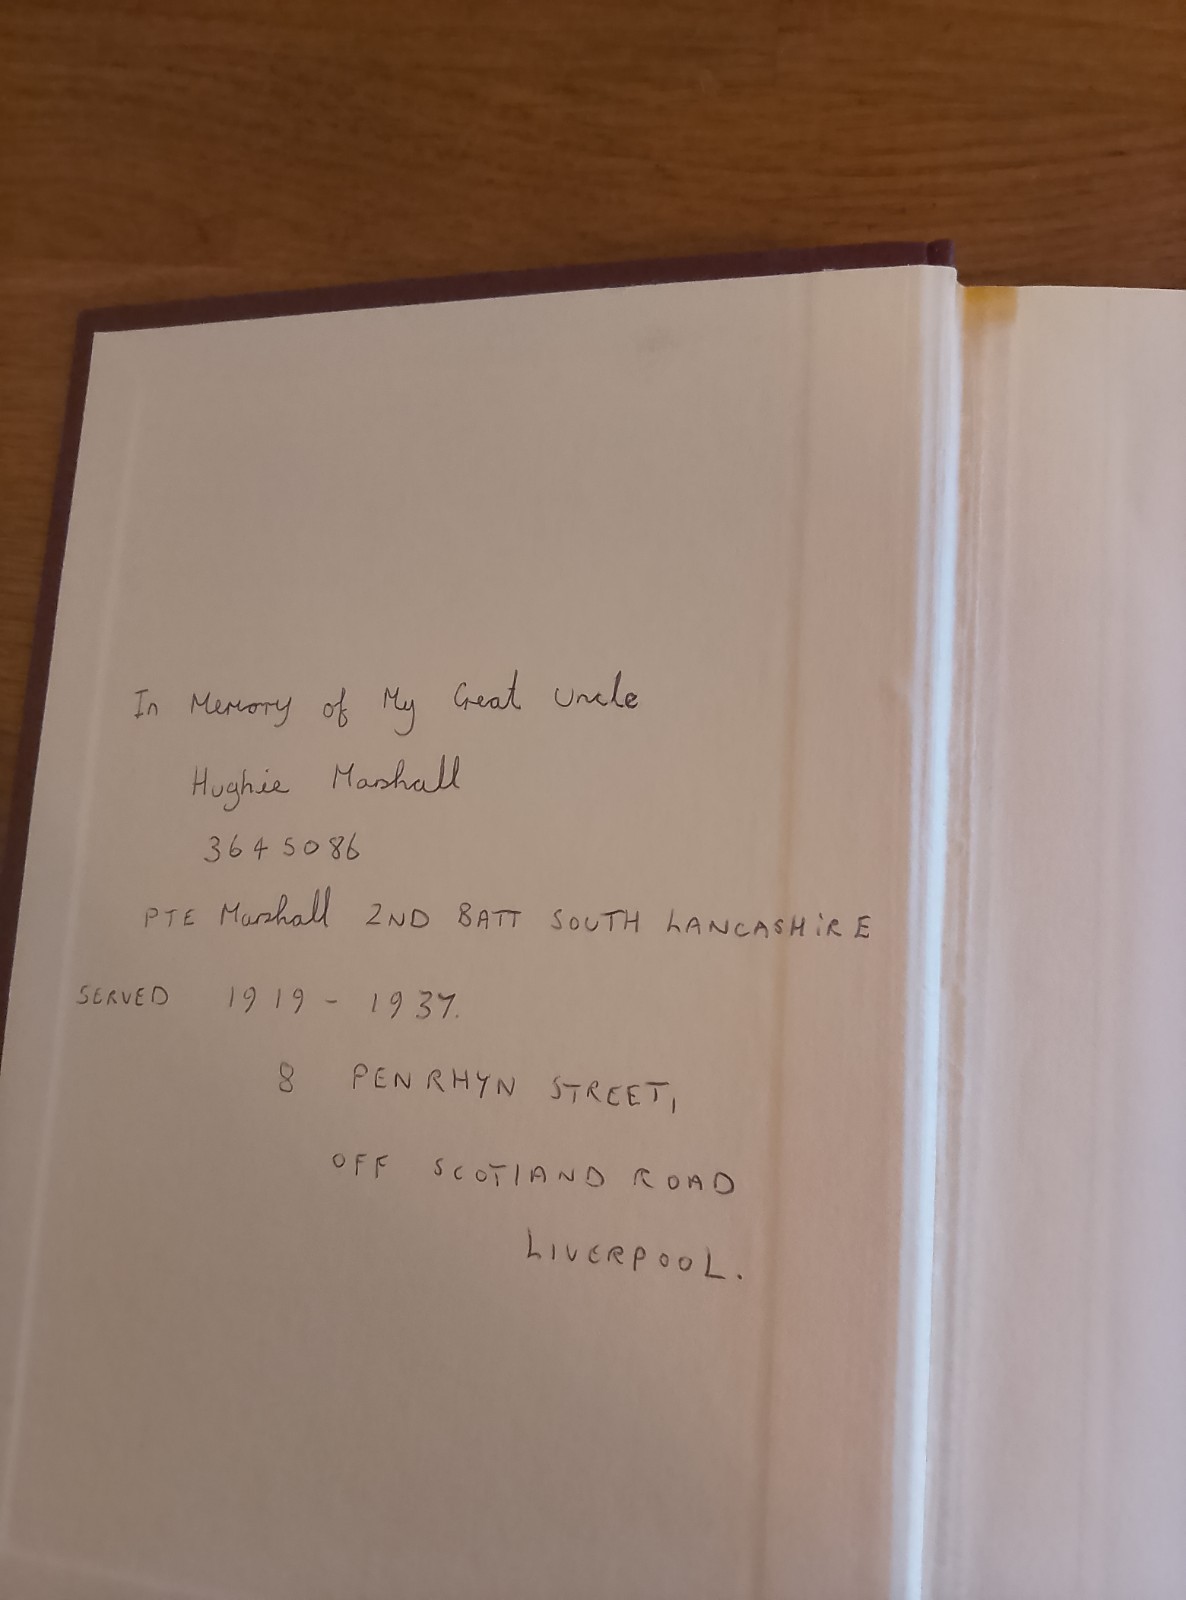 In Memory of My Great Uncle
Hughie Marshall
3645086
PTE Marshall 2ND BATT SOUTH LANCASHIRE
SERVED 1919 - 1937.
8 PENRHYN STREET,
OFF SCOTLAND ROAD
LIVERPOOL.